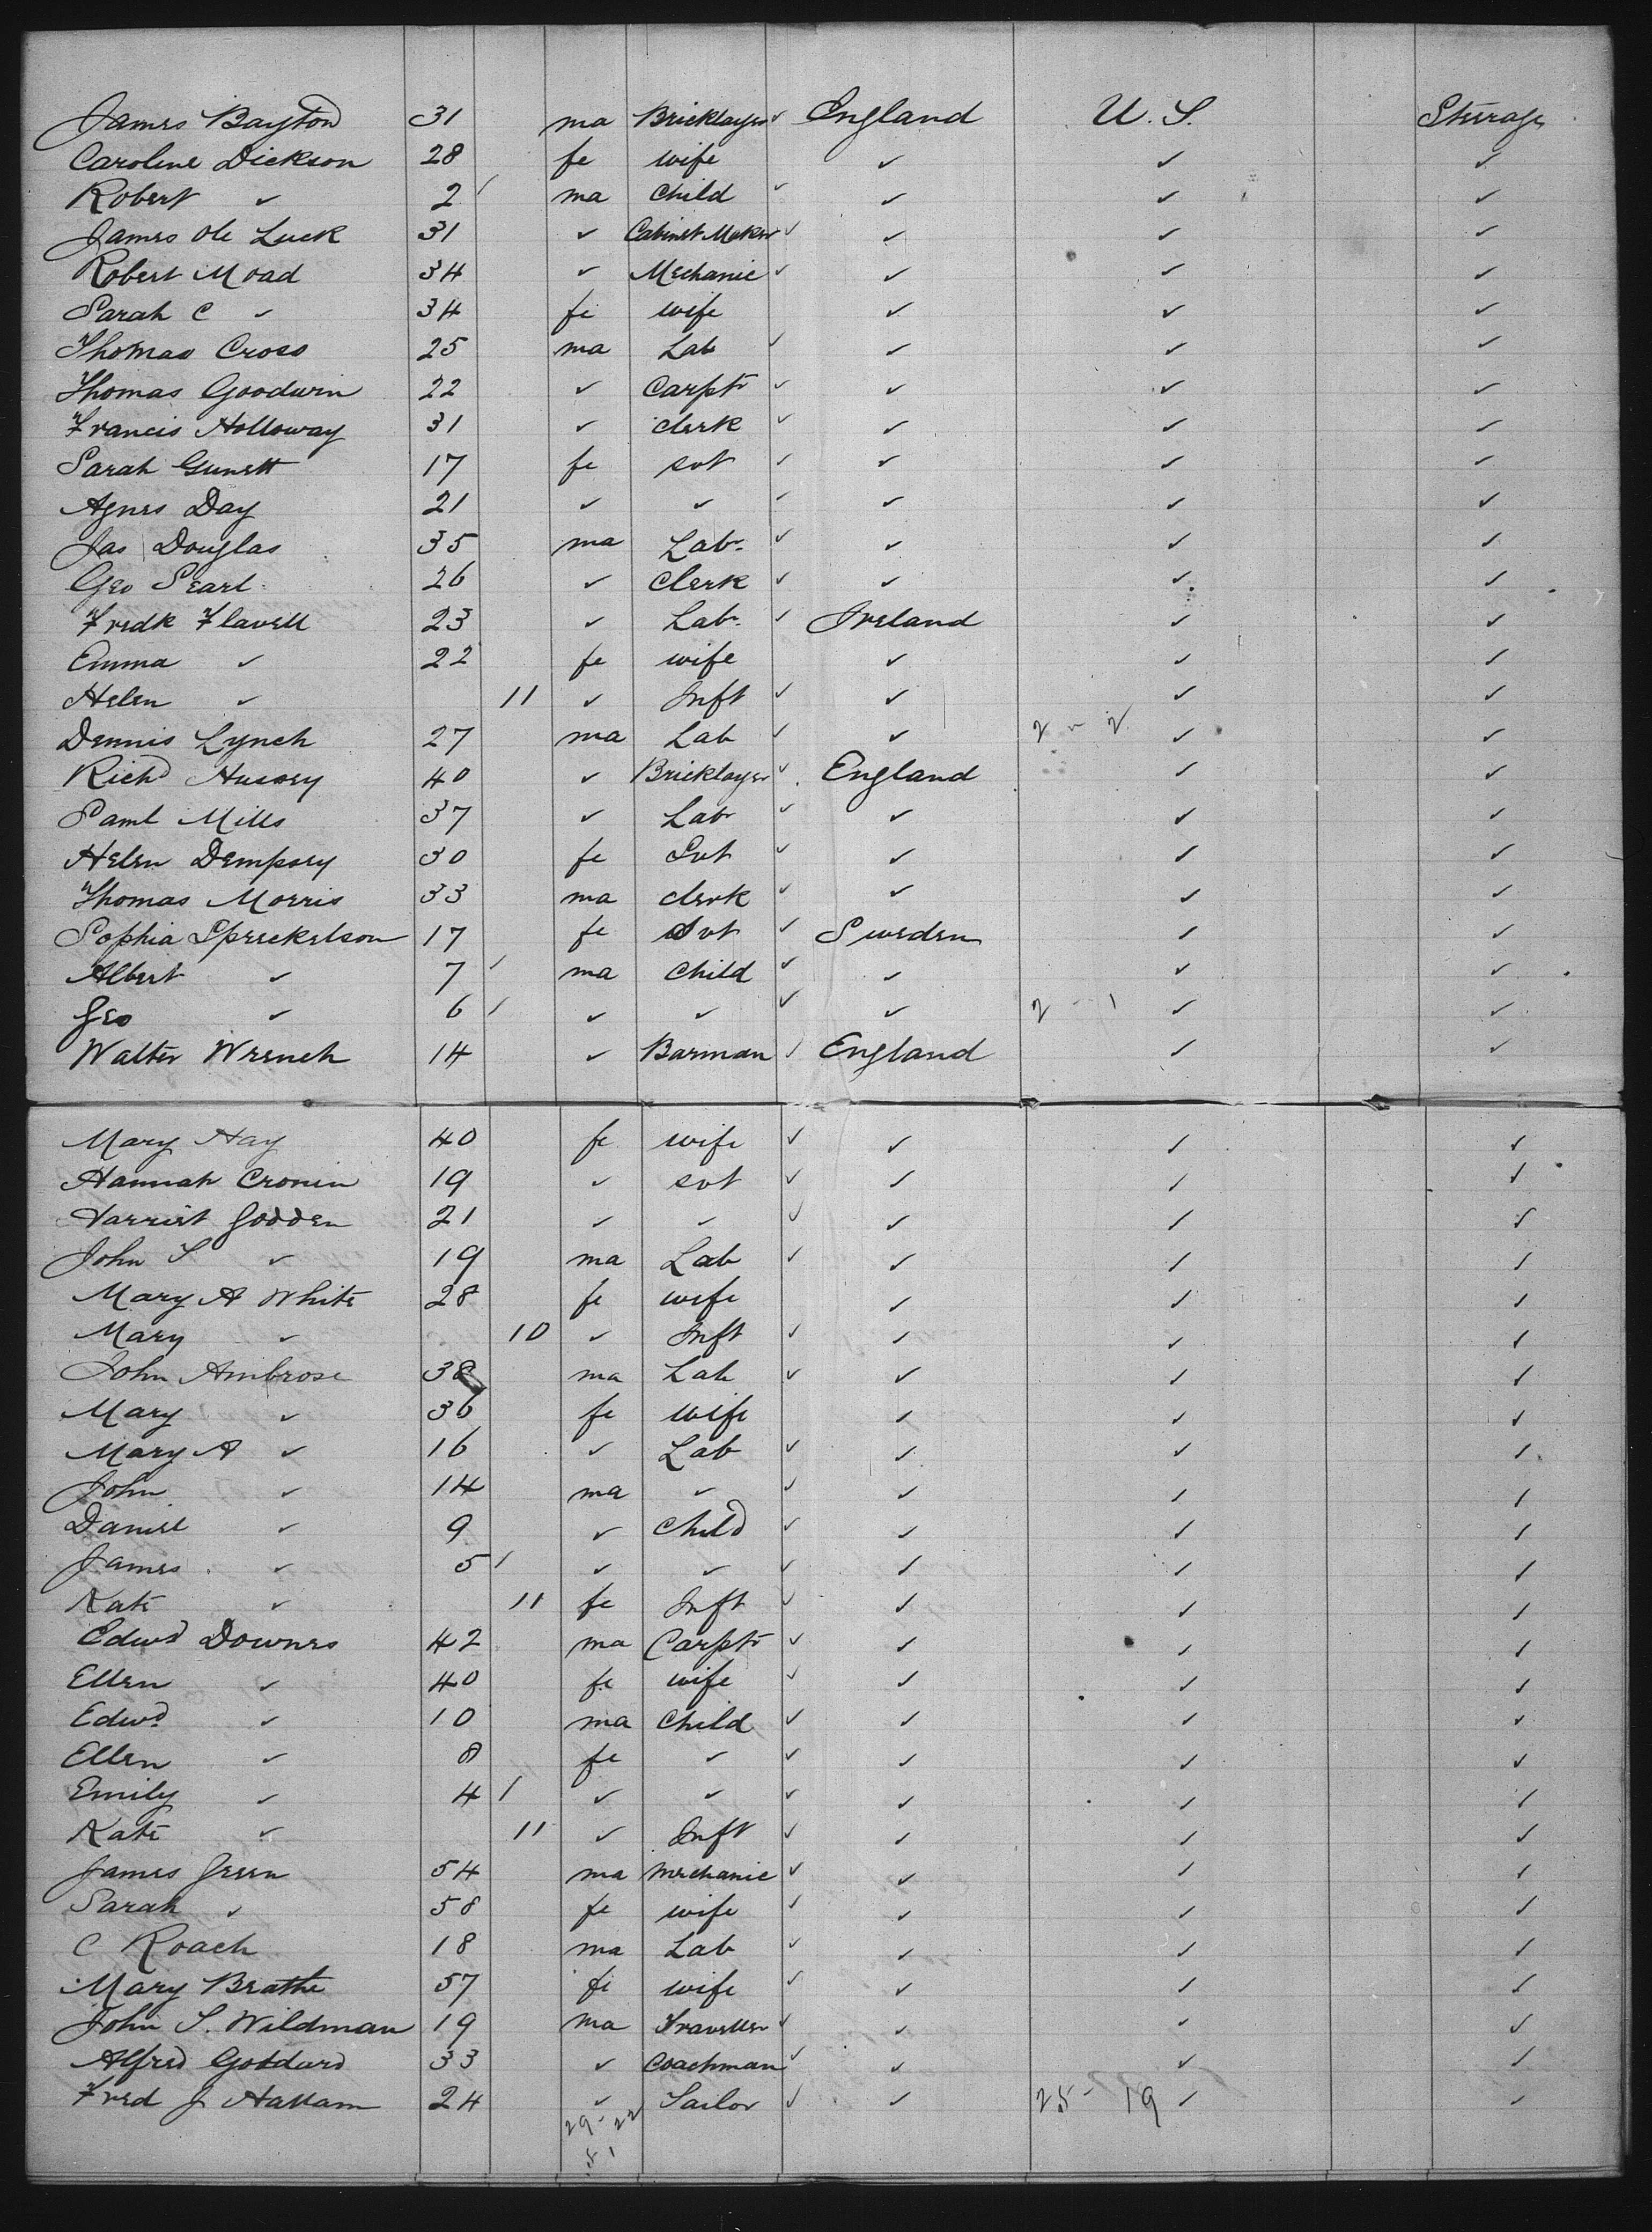 James Bayton 31 ma Bricklayer ✓ England U. S. Steerage
Caroline Dickson 28 fe wife ✓ ✓ ✓
Robert ✓ 2 / ma Child ✓ ✓ ✓ ✓
James Luck 31 ✓ Cabinet Maker ✓ ✓ ✓ ✓
Robert Moad 34 ✓ Mechanic ✓ ✓ ✓ ✓
Sarah C ✓ 34 fe wife ✓ ✓ ✓
Thomas Cross 25 ma Lab ✓ ✓ ✓ ✓
Thomas Goodwin 22 ✓ Carptr ✓ ✓ ✓ ✓
Francis Holloway 31 ✓ clerk ✓ ✓ ✓ ✓
Sarah 17 fe svt ✓ ✓ ✓ ✓
Agnes Day 21 ✓ ✓ ✓ ✓ ✓ ✓
Jas Douglas 35 ma Labr ✓ ✓ ✓ ✓
Geo Searl 26 ✓ Clerk ✓ ✓ ✓ ✓
Fredk Flavell 23 ✓ Labr ✓ Ireland ✓ ✓
Emma ✓ 22 fe wife ✓ ✓ ✓
Helen ✓ 11 ✓ Inft ✓ ✓ ✓ ✓
Dennis Lynch 27 ma Lab ✓ ✓ 2 - 2 ✓ ✓
Richd Hussey 40 ✓ Bricklayer ✓ England ✓ ✓
Saml Mills 37 ✓ Labr ✓ ✓ ✓ ✓
Helen Dempsey 30 fe Svt ✓ ✓ ✓ ✓
Thomas Morris 33 ma clerk ✓ ✓ ✓ ✓
Sophia Spreckelson 17 fe Svt ✓ Sweden ✓ ✓
Albert ✓ 7 / ma Child ✓ ✓ ✓ ✓
Geo ✓ 6 / ✓ ✓ ✓ ✓ 2 - 1 ✓ ✓
Walter Wrench 14 ✓ Barman ✓ England ✓ ✓
Mary Hay 40 fe wife ✓ ✓ ✓ ✓
Hannah Cronin 19 ✓ svt ✓ ✓ ✓ ✓
Harriet Godden 21 ✓ ✓ ✓ ✓ ✓ ✓
John S ✓ 19 ma Lab ✓ ✓ ✓ ✓
Mary A White 28 fe wife ✓ ✓ ✓
Mary ✓ 10 ✓ Inft ✓ ✓ ✓ ✓
John Ambrose 38 ma Lab ✓ ✓ ✓ ✓
Mary ✓ 36 fe wife ✓ ✓ ✓
Mary A ✓ 16 ✓ Lab ✓ ✓ ✓ ✓
John ✓ 14 ma ✓ ✓ ✓ ✓ ✓
Daniel ✓ 9 ✓ Child ✓ ✓ ✓ ✓
James ✓ 5 / ✓ ✓ ✓ ✓ ✓ ✓
Kate ✓ 11 fe Inft ✓ ✓ ✓ ✓
Edwd Downes 42 ma Carptr ✓ ✓ ✓ ✓
Ellen ✓ 40 fe wife ✓ ✓ ✓ ✓
Edwd ✓ 10 ma Child ✓ ✓ ✓ ✓
Ellen ✓ 8 fe ✓ ✓ ✓ ✓ ✓
Emily ✓ 4 / ✓ ✓ ✓ ✓ ✓ ✓
Kate ✓ 11 ✓ Inft ✓ ✓ ✓ ✓
James Green 54 ma mechanic ✓ ✓ ✓ ✓
Sarah ✓ 58 fe wife ✓ ✓ ✓ ✓
C Roach 18 ma Lab ✓ ✓ ✓ ✓
Mary 57 fe wife ✓ ✓ ✓ ✓
John S. Wildman 19 ma Traveller ✓ ✓ ✓ ✓
Alfred Goddard 33 ✓ Coachman ✓ ✓ ✓ ✓
Fred J Hallam 24 ✓ Sailor ✓ ✓ 25 - 19 ✓ ✓
29 - 22
5 1